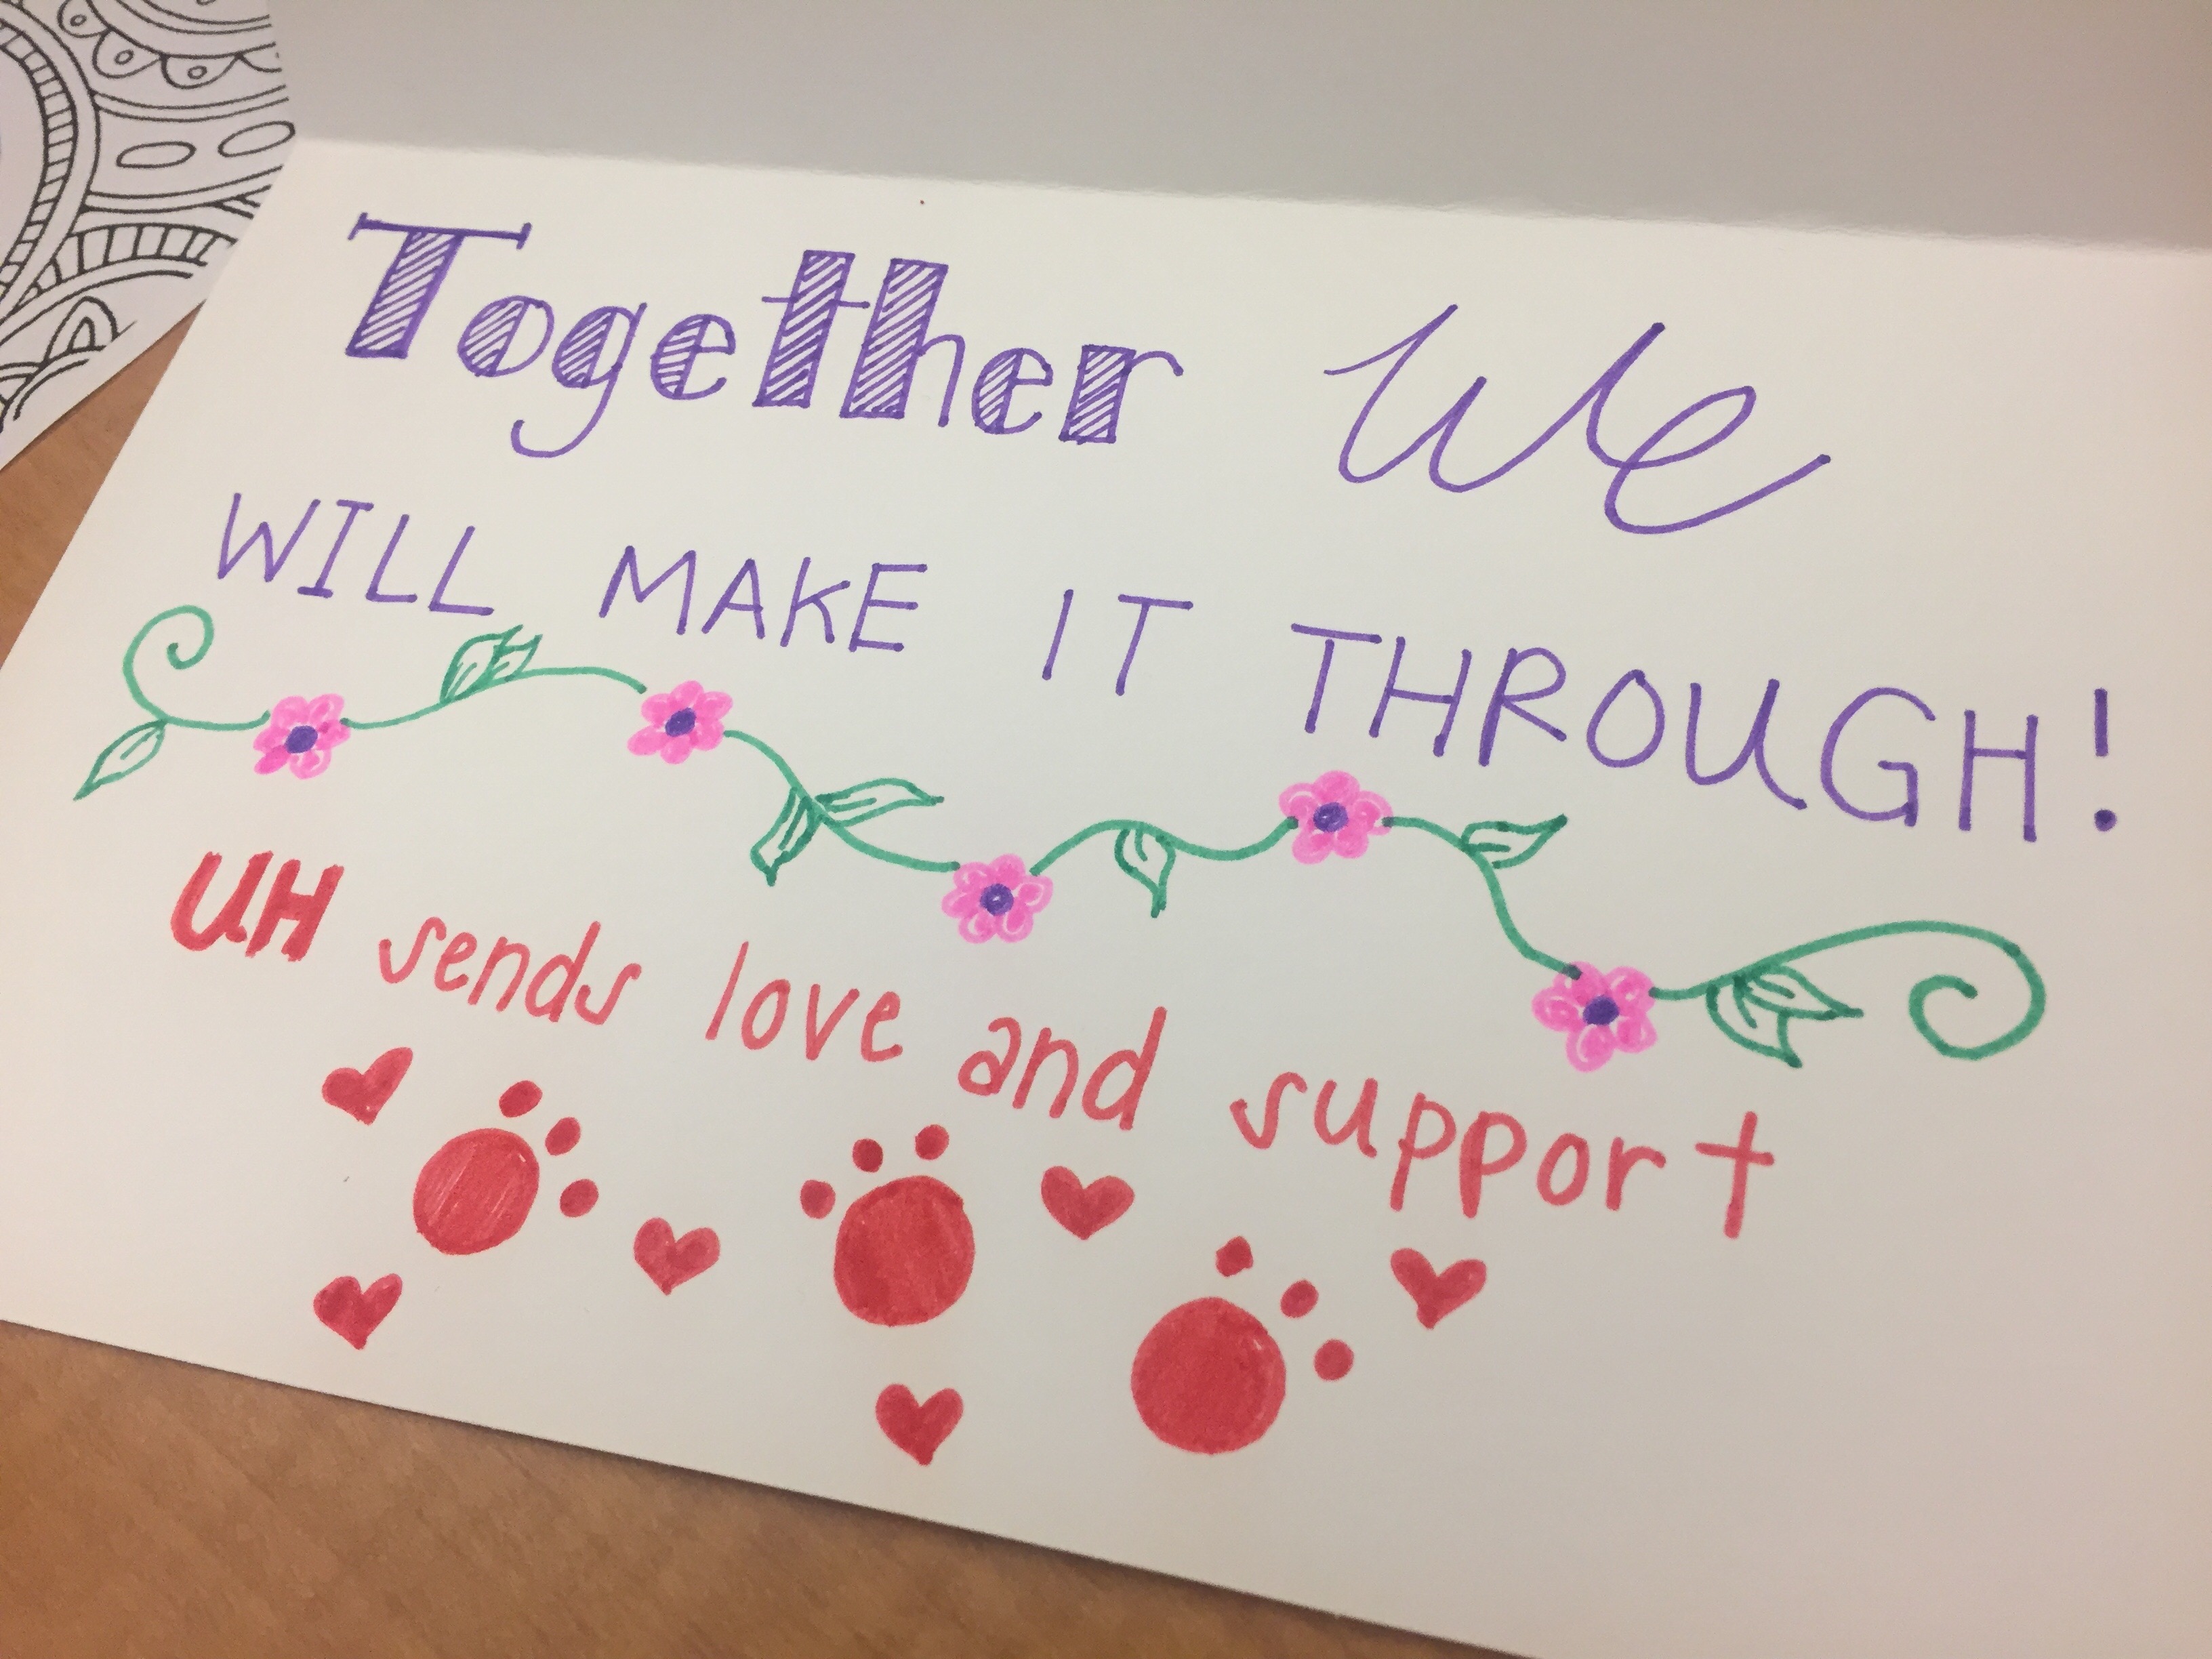 Together We
WILL MAKE IT THROUGH!
UH sends love and support